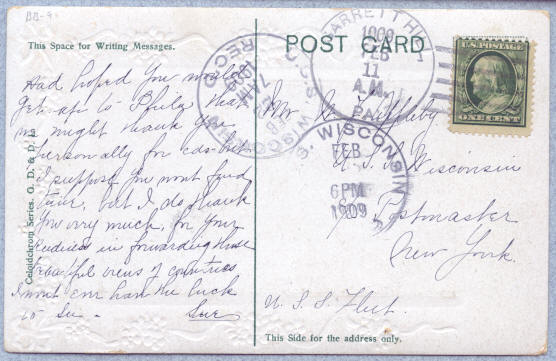 BB-9
This Space for Writing Messages.
POST CARD
Had hoped you would
get up to Phila that
we might thank you
personally for cds but
I suppose you wont find
time, but I do thank
you very much, for your
in forwarding these
beautiful views of countries
I wont ever have the luck
to see -
Sue
Celoidchrom Series. O. D. & D.
GARRETTHILL
1909
FEB
11
A.M.
PA.
REC'D
7 AM
1909
U.S.S. WISCONSIN
U.S. POSTAGE
ONE CENT
Mr
U.S.S. Wisconsin
℅ Postmaster
New York.
U.S.S. Fleet.
U.S.S. WISCONSIN
FEB
6 PM
1909
This Side for the address only.